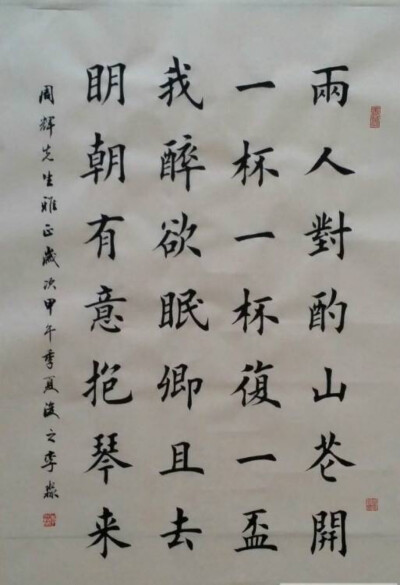 兩人對酌山花開
一杯一杯復一盃
我醉欲眠卿且去
眀朝有意抱琴来
周輝先生雅正歲次甲午季夏後之李淼